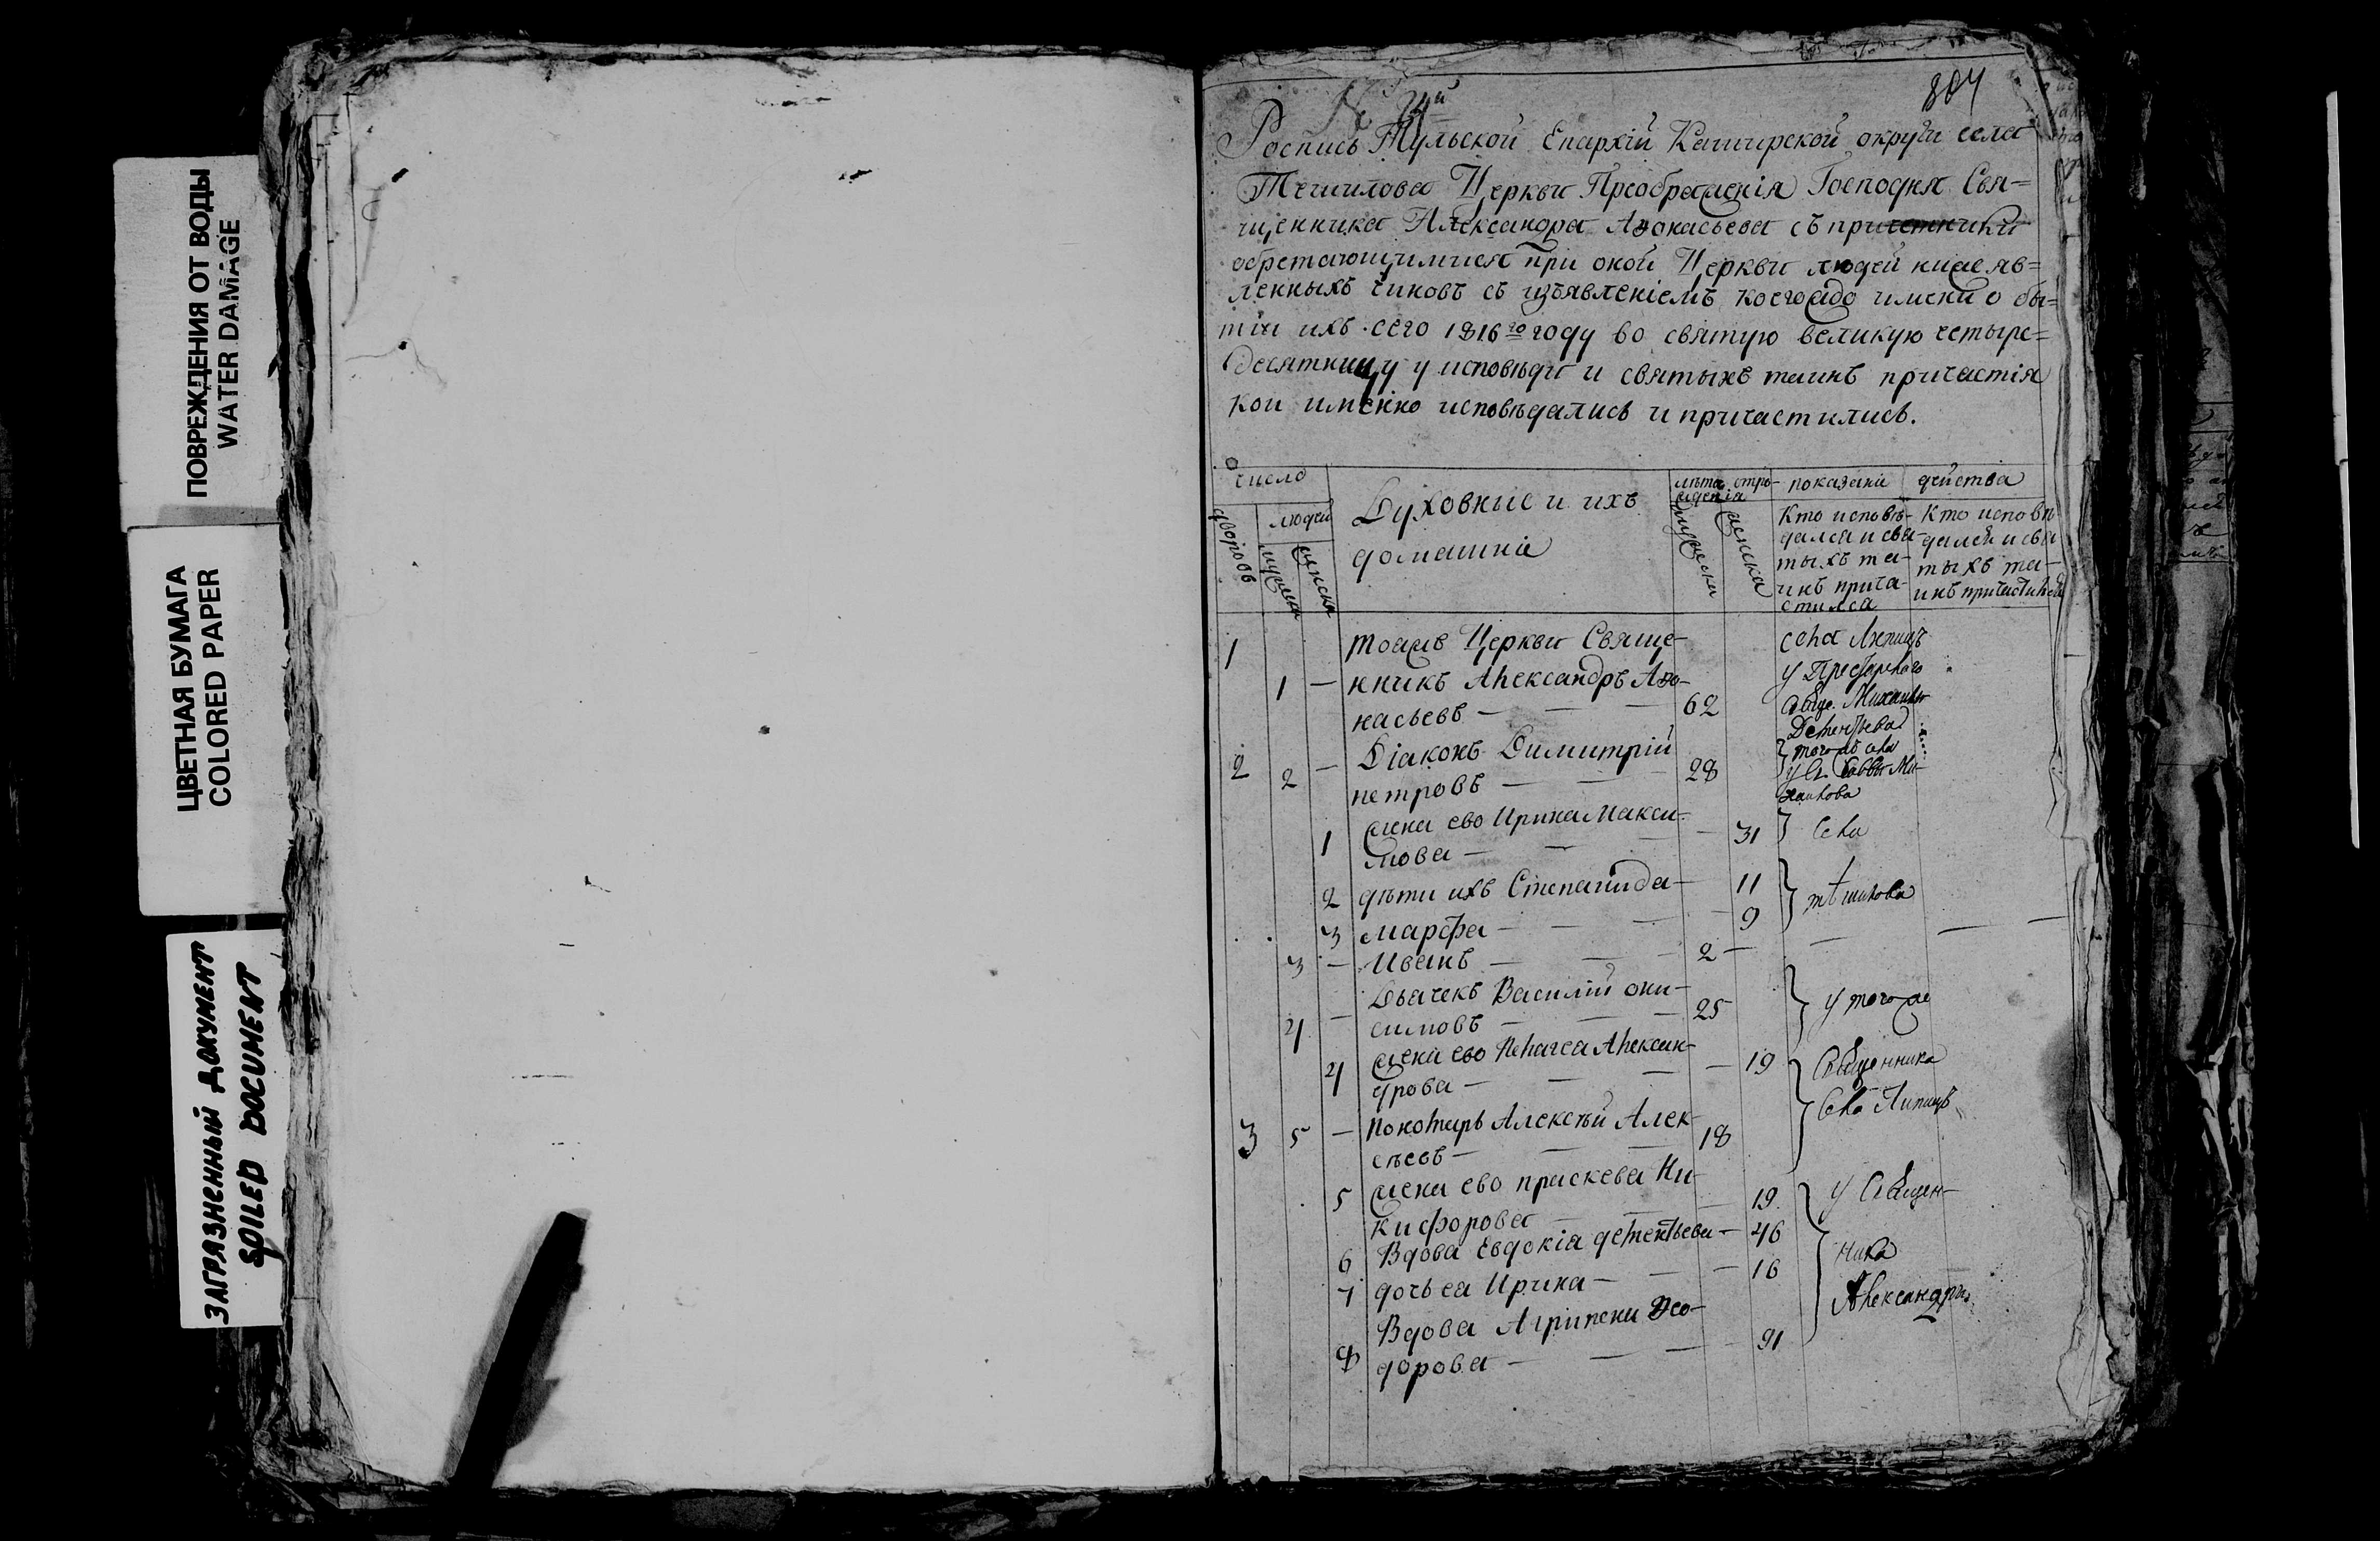 ПОВРЕЖДЕНИЯ ОТ ВОДЫ
WATER DAMAGE
ЦВЕТНАЯ БУМАГА
COLORED PAPER
ЗАГРЯЗНЕННЫЙ ДОКУМЕНТ
SOILED DOCUMENT
804
№ 24й
Роспись Тульской Епархіи Каширской округи села
Тешилова Церкви Преображенія Господня Свя=
щенника Александра Аѳонасьева съ причетники
обретающимися при оной Церкви людей нижеяв=
ленныхъ чиновъ съ изъявленіемъ коегождо имени о бы=
тіи ихъ сего 1816го году во святую великую четыре=
десятницу у исповѣди и святыхъ таинъ причастія
кои именно исповѣдались и причастились.
число
дворовъ
людей
мужска
женска
Духовные и их
домашніе
лѣта отро-
жденія
мужска
женска
показаніи действа
Кто исповѣ-
дался и свя-
тыхъ та-
инъ прича-
стился
Кто исповѣ
дался и свя
тыхъ та-
инъ причастился
1 тояжъ Церкви Свяще-
1 — нникъ Александръ Аѳо-
насьевъ — — 62
села Липицъ
у Престарелаго
Свще. Михаила
Дементьева
2 2 — Діаконъ Димитрій
петровъ — — 28
тогожъ села
у Св. Саввы Ми-
хаилова
1 жена ево Ирина Макси-
мова — — — 31 села
2 дѣти ихъ Степанида — 11
3 марѳа — — — 9
тѣшилова
3 — Иванъ — — 2 — — —
Дьячекъ Василій они-
4 — симовъ — — 25
у того же
4 жена ево Пелагея Алексан-
дрова — — — 19
Священника
Села Липицъ
3 5 — пономарь Алексѣй Алек
сѣевъ — — 18
5 жена ево прасковея Ни-
кифорова — — 19
у Священ-
6 Вдова Евдокіа дементьева — 46
ника
7 дочь еа Ирина — — — 16
Александра
Вдова Агрипена Ѳео-
8 дорова — — — 91